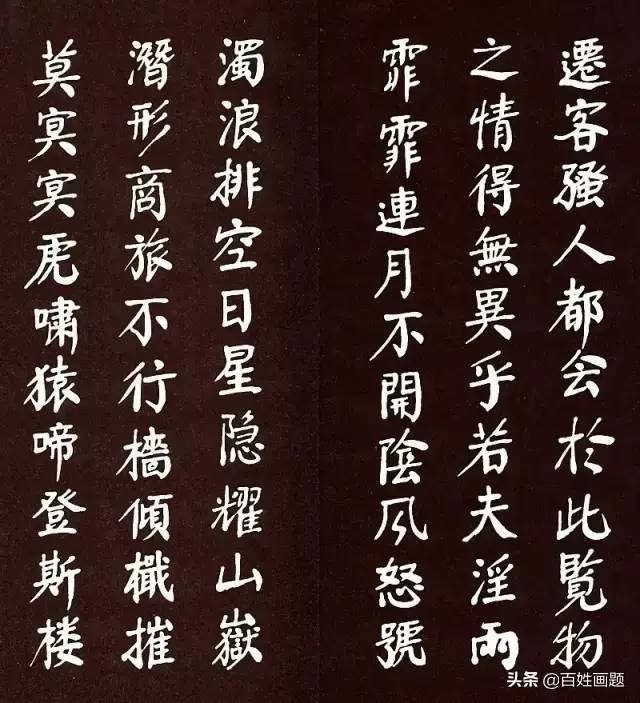 遷客騷人都会於此覽物
之情得無異乎若夫淫雨
霏霏連月不開陰风怒號
濁浪排空日星隐耀山嶽
潛形商旅不行檣傾檝摧
莫冥冥虎嘯猿啼登斯楼
头条 @百姓画题